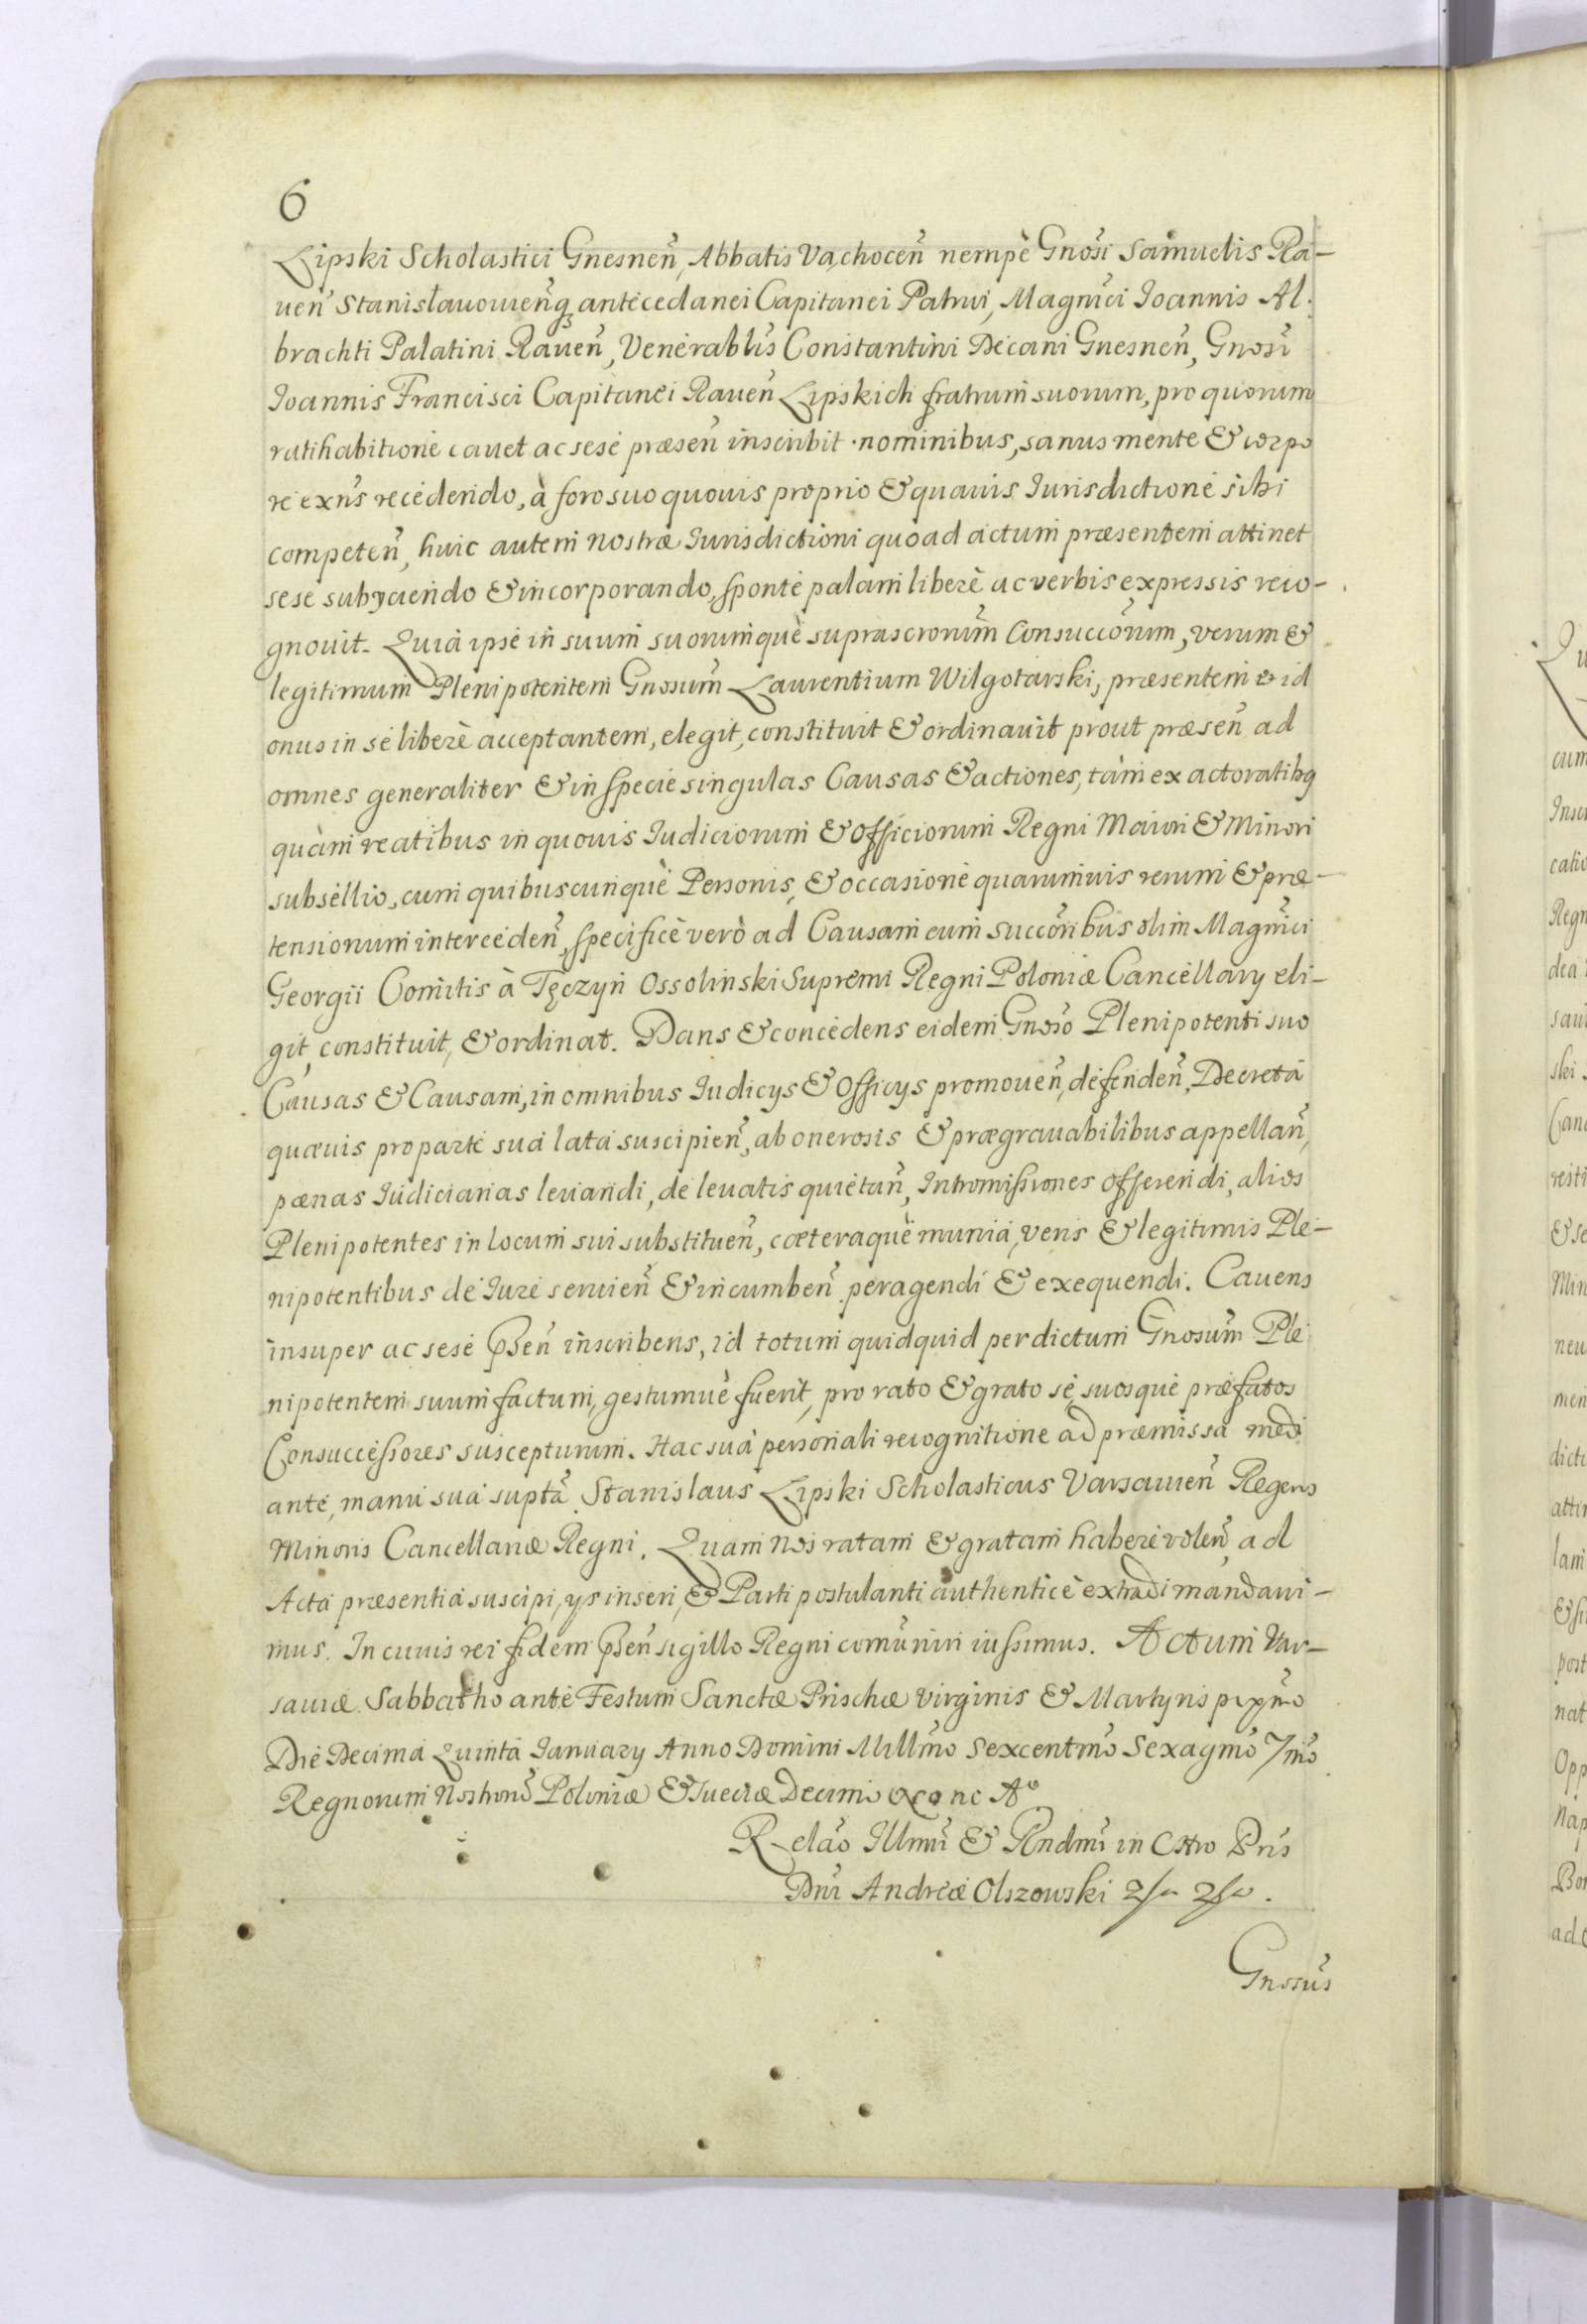 6
Lipski Scholastici Gnesneñ, Abbatis Vachoceñ nempè Gnosi Samuelis Ra-
ueñ Stanisławowieñq antecedanei Capitanei Patrui, Magnici Joannis Al-
brachti Palatini Raueñ, Venerablis Constantini Decani Gnesneñ, Gnosi
Joannis Francisci Capitanei Raueñ Lipskich fratrum suorum, pro quorum
ratihabitione cauet ac sese præseñ inscribit nominibus, sanus mente & corpo
re exns recedendo, à foro suo quouis proprio & quauis Jurisdictione sibi
competeñ, huic autem nostræ Jurisdictioni quo ad actum præsentem attinet
sese subyciendo & incorporando, sponte palam liberè ac verbis expressis reco-
gnouit. Quia ipse in suum suorumque suprascronum Consuccorum, verum &
legitimum Plenipotentem Gnosum Laurentium Wilgotarski, præsentem & id
onus in se liberè acceptantem, elegit, constituit & ordinauit prout præseñ ad
omnes generaliter & in specie singulas Causas & actiones, tàm ex actoratibq
quàm reatibus in quouis Judiciorum & Officiorum Regni Maiori & Minori
subsellio, cum quibuscunque Personis, & occasione quarumuis rerum & præ-
tensionum intercedeñ, specificè verò ad Causam cum succoribus olim Magnici
Georgii Comitis à Tęczyn Ossolinski Supremi Regni Poloniæ Cancellary eli-
git, constituit, & ordinat. Dans & concedens eidem Gnoso Plenipotenti suo
Causas & Causam, in omnibus Judicys & Officys promoueñ, defendeñ, Decreta
quæuis pro parte sua lata suscipieñ, ab onerosis & prægrauabilibus appellañ,
pænas Judiciarias leuandi, de leuatis quietañ, Intromissiones offerendi, alios
Plenipotentes in locum sui substitueñ, cæteraquè munia, veris & legitimis Ple-
nipotentibus de Jure seruieñ & incumbeñ peragendi & exequendi. Cauens
insuper ac sese pseñ inscribens, id totum quidquid per dictum Gnosum Ple
nipotentem suum factum, gestumuè fuerit, pro rato & grato se, suosque præfatos
Consuccessores suscepturum. Hac sua personali recognitione ad præmissa medi
ante, manu sua suptâ. Stanislaus Lipski Scholasticus Varsauieñ Regens
Minoris Cancellariæ Regni. Quam nos ratam & gratam habere voleñ, ad
Acta præsentia suscipi, ys inseri, & Parti postulanti authenticè extradi mandaui-
mus. In cuius rei fidem pseñ sigillo Regni comuniri iussimus. Actum Var-
sauiæ Sabbatho ante Festum Sanctæ Prischæ Virginis & Martyris pxmo
Die Decima Quinta January Anno Domini Millmo Sexcentmo Sexagmo 7mo
Regnorum Nostrorũ Poloniæ & Sueciæ Decimo nc Aº
Relao Illmi & Rndmi in Chro Pris
Dni Andreæ Olszowski
Gnosus